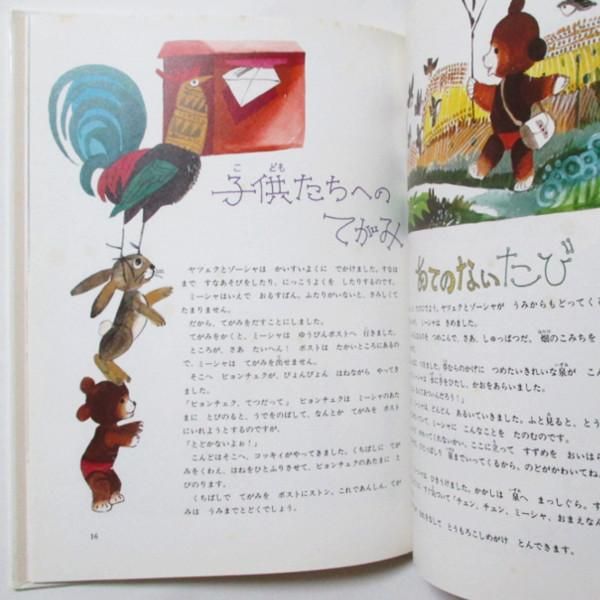 子供たちへの
てがみ
ヤツェクとゾーシャは かいすいよくに でかけました。すなは
まで すなあそびをしたり、にっこうよくを したりするのです。
ミーシャはいえで おるすばん。ふたりがいないと、さみしくて
たまりません。
だから、てがみをだすことにしました。
てがみをかくと、ミーシャは ゆうびんポストへ 行きました。
ところが、さあ たいへん！ ポストは たかいところにあるの
で、ミーシャは てがみを出せません。
そこへ ピョンチェクが、ぴょんぴょん はねながら やってき
ました。
「ピョンチェク、てつだって」 ピョンチェクは ミーシャのあた
まに とびのると、うでをのばして、なんとか てがみを ポスト
にいれようとするのですが。
「とどかないよぉ！」
こんどはそこへ、コッキィがやってきました。くちばしに てが
みをくわえ、はねをひとふりさせて、ピョンチェクのあたまに と
びのります。
くちばしで てがみを ポストにストン。これであんしん。てが
みは うみまでとどくでしょう。
16
あてのないたび
ヤツェクとゾーシャが うみからもどってく
ミーシャは きめました。
さあ、しゅっぱつだ。畑のこみちを
つめたいきれいな泉が
をひたし、かおをあらいました。
どんどん あるいていきました。ふと見ると、と
ミーシャに こんなことを たのむのです。
ここに立って すずめを おいはら
まで いってくるから。のどがかわいてね。
ひきうけました。かかしは 泉へ まっしぐら。す
「チュン、チュン、ミーシャ、おまえなん
とうもろこしめがけ とんできます。